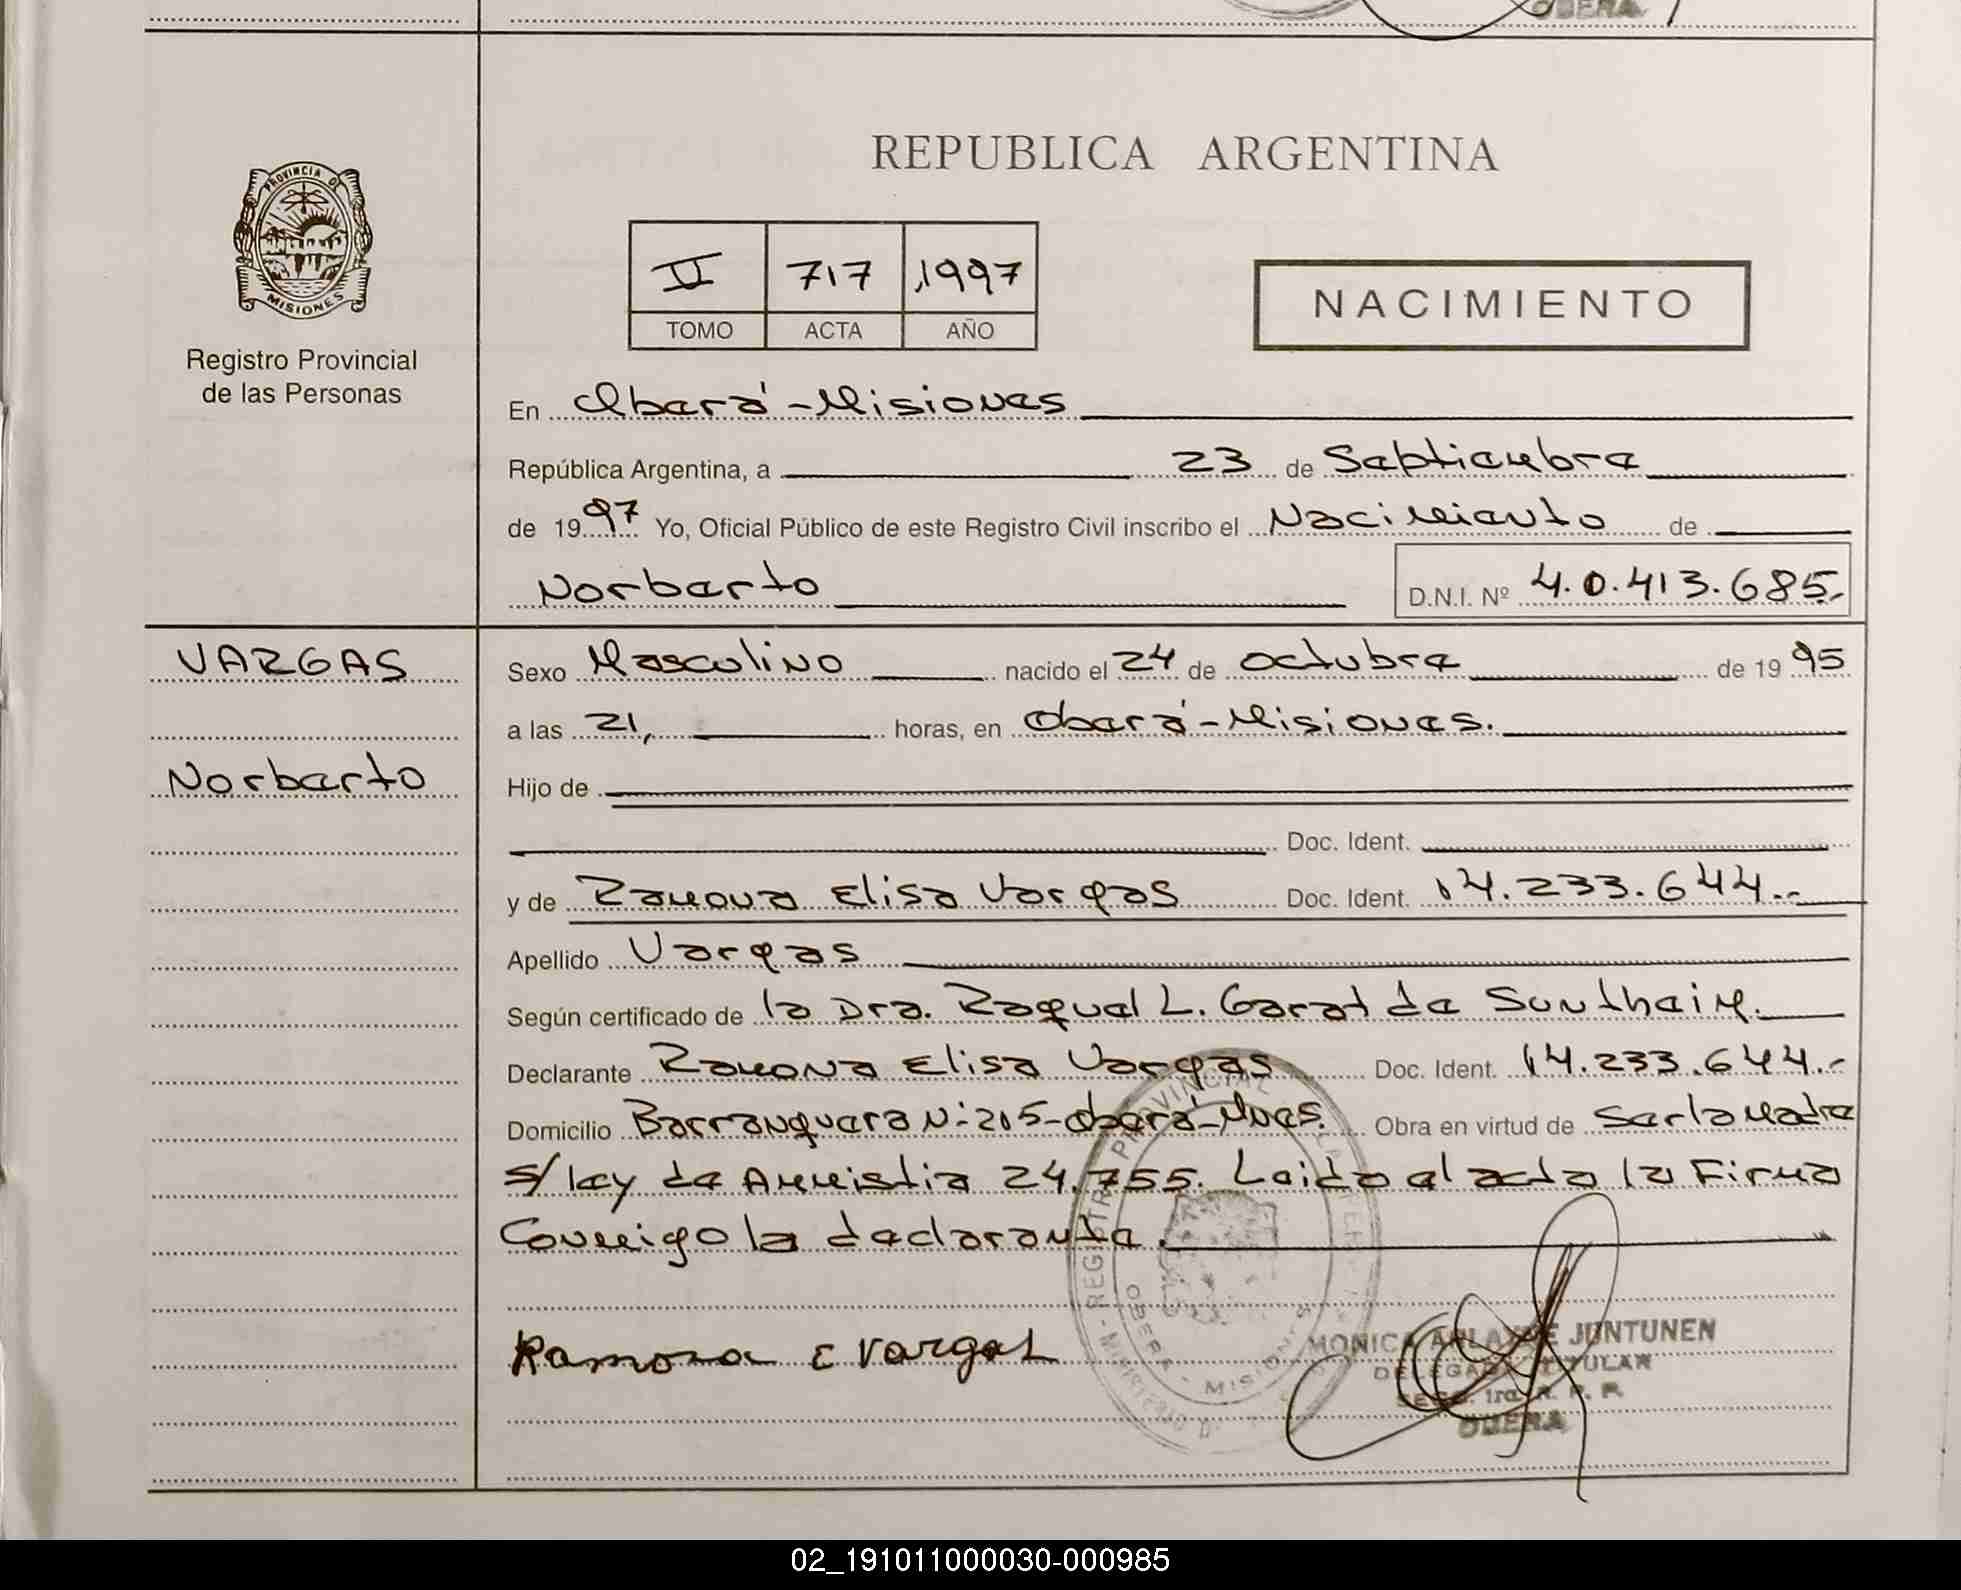 OBERA
REPUBLICA ARGENTINA
PROVINCIA DE
MISIONES
Registro Provincial
de las Personas
II 717 1997
TOMO ACTA AÑO
NACIMIENTO
En Oberá-Misiones
República Argentina, a 23 de Septiembre
de 1997 Yo, Oficial Público de este Registro Civil inscribo el Nacimiento de
Norberto D.N.I. Nº 40.413.685.-
VARGAS
Norberto
Sexo Masculino nacido el 24 de octubre de 1995
a las 21, horas, en Oberá-Misiones.
Hijo de
Doc. Ident.
y de Ramona Elisa Vargas Doc. Ident. 14.233.644.-
Apellido Vargas
Según certificado de la Dra. Raquel L. Garat de Suntheim.
Declarante Ramona Elisa Vargas Doc. Ident. 14.233.644.-
Domicilio Barranquera N:205-Oberá-Mnes. Obra en virtud de Ser la Madre
s/ ley de Amnistia 24.755. Leido el acta la Firma
Conmigo la declarante.
REGISTRO PROVINCIAL
OBERA - MISIONES
Ramona E Vargas
MONICA DE JUNTUNEN
DELEGADA TITULAR
SECC. 1ra. R. P. P.
OBERA
02_191011000030-000985